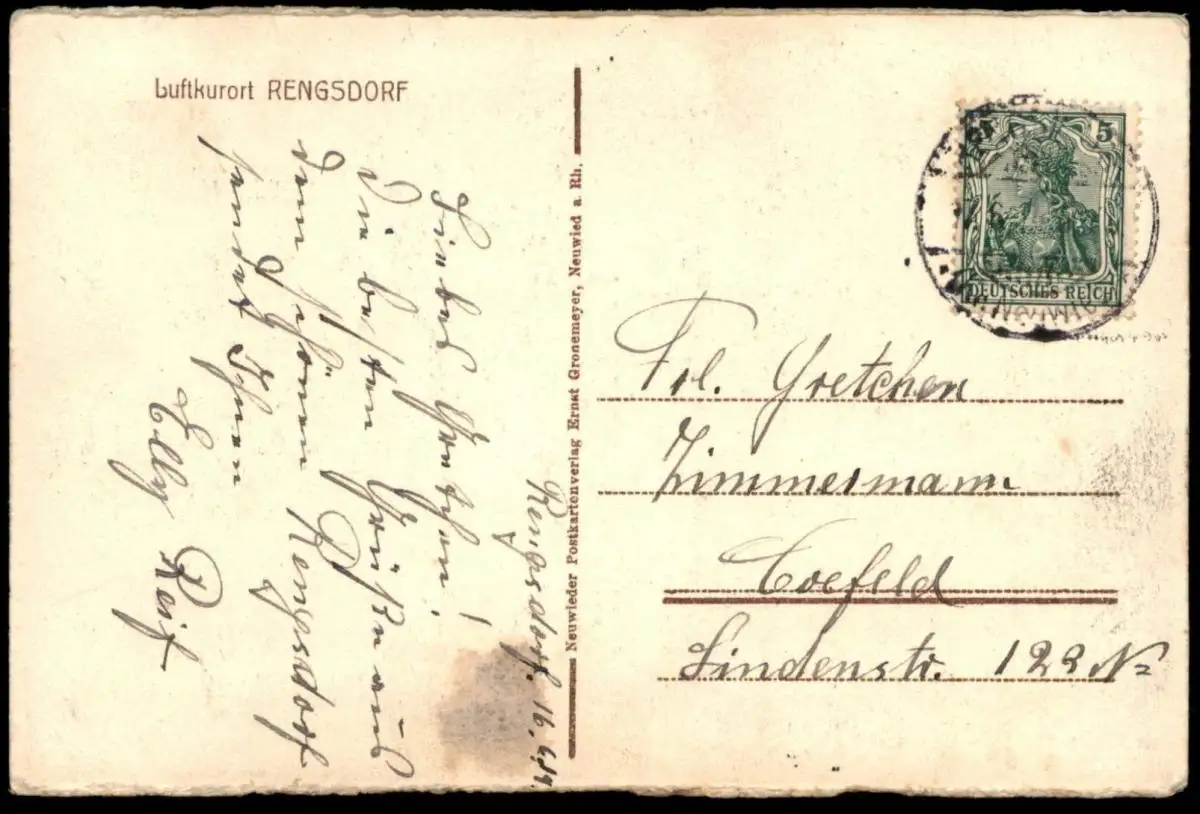 Luftkurort RENGSDORF
Rengsdorf, 16.6.14.
Liebes Gretchen!
Die besten Grüße aus
dem schönen Rengsdorf
sendet Ihnen
Elly Reif
Neuwieder Postkartenverlag Ernst Gronemeyer, Neuwied a. Rh.
5 5
DEUTSCHES REICH
Frl. Gretchen
Zimmermann
Crefeld
Lindenstr. 122